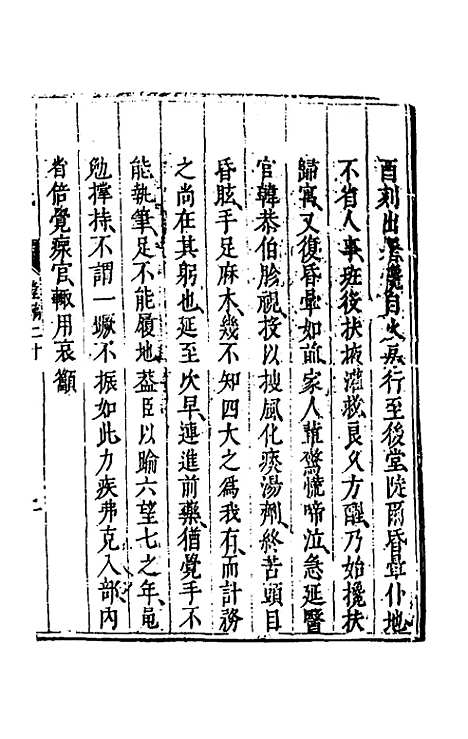 酉刻出署纔自火房行至後堂陡爾昏暈仆地
不省人事班後扶掖灌救良久方醒乃始攙扶
歸寓又復昏暈如前家人輩驚慌啼泣急延醫
官韓恭伯胗視投以搜風化痰湯劑終苦頭目
昏眩手足麻木幾不知四大之為我有而計務
之尚在其躬也延至次早連進前藥猶覺手不
能執筆足不能履地葢臣以踰六望七之年黽
勉撐持不謂一蹶不振如此力疾弗克入部內
省倍覺瘝官輙用哀籲